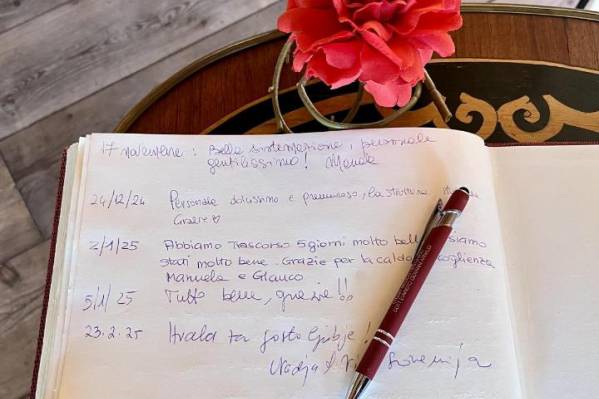 17 novembre : Bella sistemazione, personale
gentilissimo!
24/12/24 Personale dolcissimo e premuroso, la struttura
Grazie
2/1/25 Abbiamo trascorso 5 giorni molto belli siamo
stati molto bene. Grazie per la calda
Manuela e Glauco
5/1/25 Tutto bene, grazie!!
23.2.25 Hvala za gostoljubje!
Nadja Slovenija